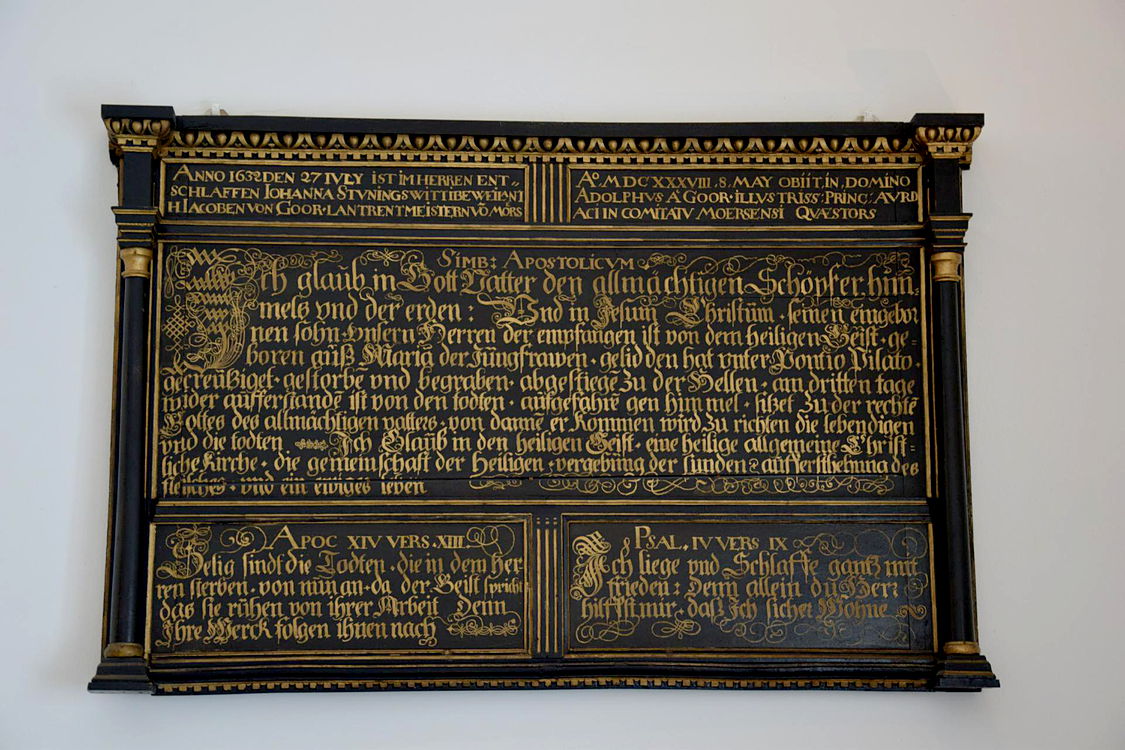 ANNO 1632 DEN 27 IVLY IST IM HERREN ENT„
SCHLAFFEN IOHANNA STVNINGS WITTIBE WEIL·ANI
H IACOBEN VON GOOR·LANTRENTMEISTERN VÕ MÖRS
Aº. MDCXXXVIII.8. MAY OBIIT, IN, DOMINO
ADOLPHVS A GOOR·ILLVSTRISS: PRINC: AVRĐ
ACI IN COMITATV MOERSENSI QVÆSTORS
SIMB: APOSTOLICVM
Ich glaub in Gott Vatter den allmächtigen Schöpfer him„
mels vnd der erden: Vnd in Jesum Christum·seinen eingebor
nen sohn·vnsern Herren der empfangen ist von dem heiligen Geist·ge„
boren auß Maria der Jungfrawen·gelidden hat vnter Pontio Pilato
gecreußiget·gestorbē vnd begraben·abgestiegē zu der Hellen·am dritten tage
wider aufferstandē ist von den todten·aufgefahrē gen himmel·sitzet zu der rechtē
Gottes des allmächtigen vatters·von dannē er kommen wird zu richten die lebendigen
vnd die todten Ich Glaub in den heiligen Geist·eine heilige allgemeine Christ„
liche Kirche·die gemeinschaft der Heiligen·vergebung der sunden·aufferstehung des
fleisches·vnd ein ewiges leben
APOC XIV VERS.XIII.
Selig sindt die Todten·die in dem Her
ren sterben·von nun an·da der Geist spricht
das sie ruhen von ihrer Arbeit Denn
Ihre Werck folgen ihnen nach
PSAL. IV VERS IX
Ich liege vnd Schlaffe gantz mit
frieden: Denn allein du Herr
hilffst mir·daß Ich sicher Wohne